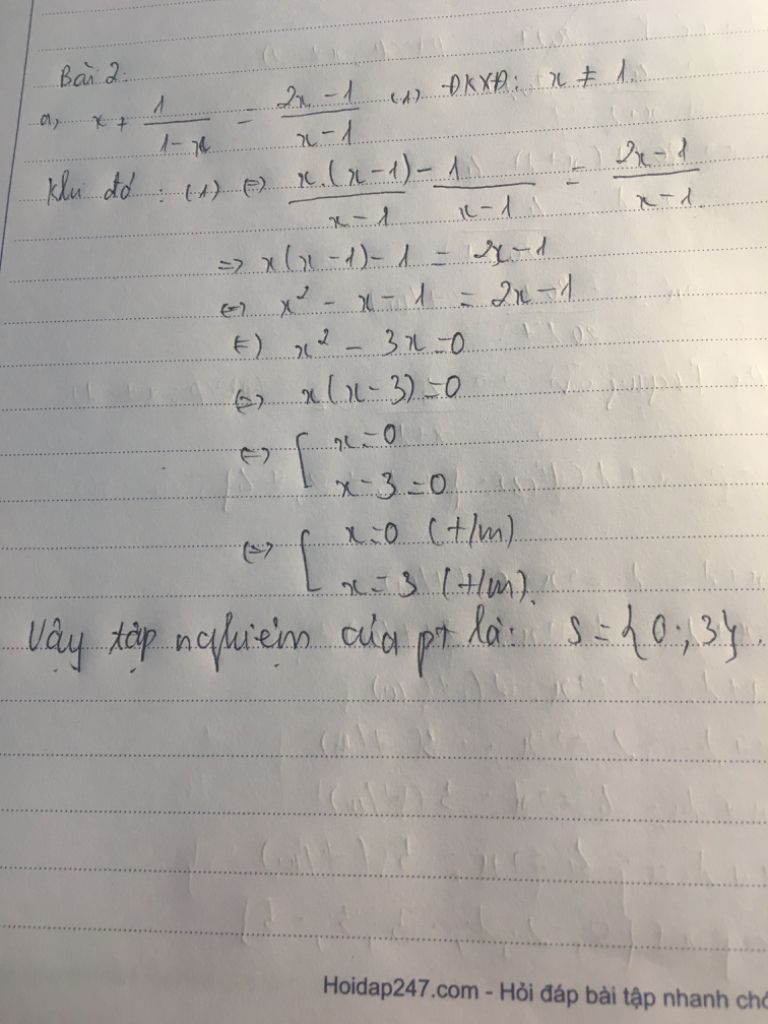 Bài 2:
a, x + 1/(1-x) = (2x-1)/(x-1) (1) ĐKXĐ: x ≠ 1.
Khi đó : (1) ⇔ x.(x-1)/(x-1) - 1/(x-1) = (2x-1)/(x-1)
⇒ x(x-1) - 1 = 2x-1
⇔ x² - x - 1 = 2x-1
⇔ x² - 3x = 0
⇔ x(x-3) = 0
⇔ [ x=0
x-3=0
⇔ [ x=0 (t/m)
x=3 (t/m).
Vậy tập nghiệm của pt là: S = {0; 3}.
Hoidap247.com - Hỏi đáp bài tập nhanh